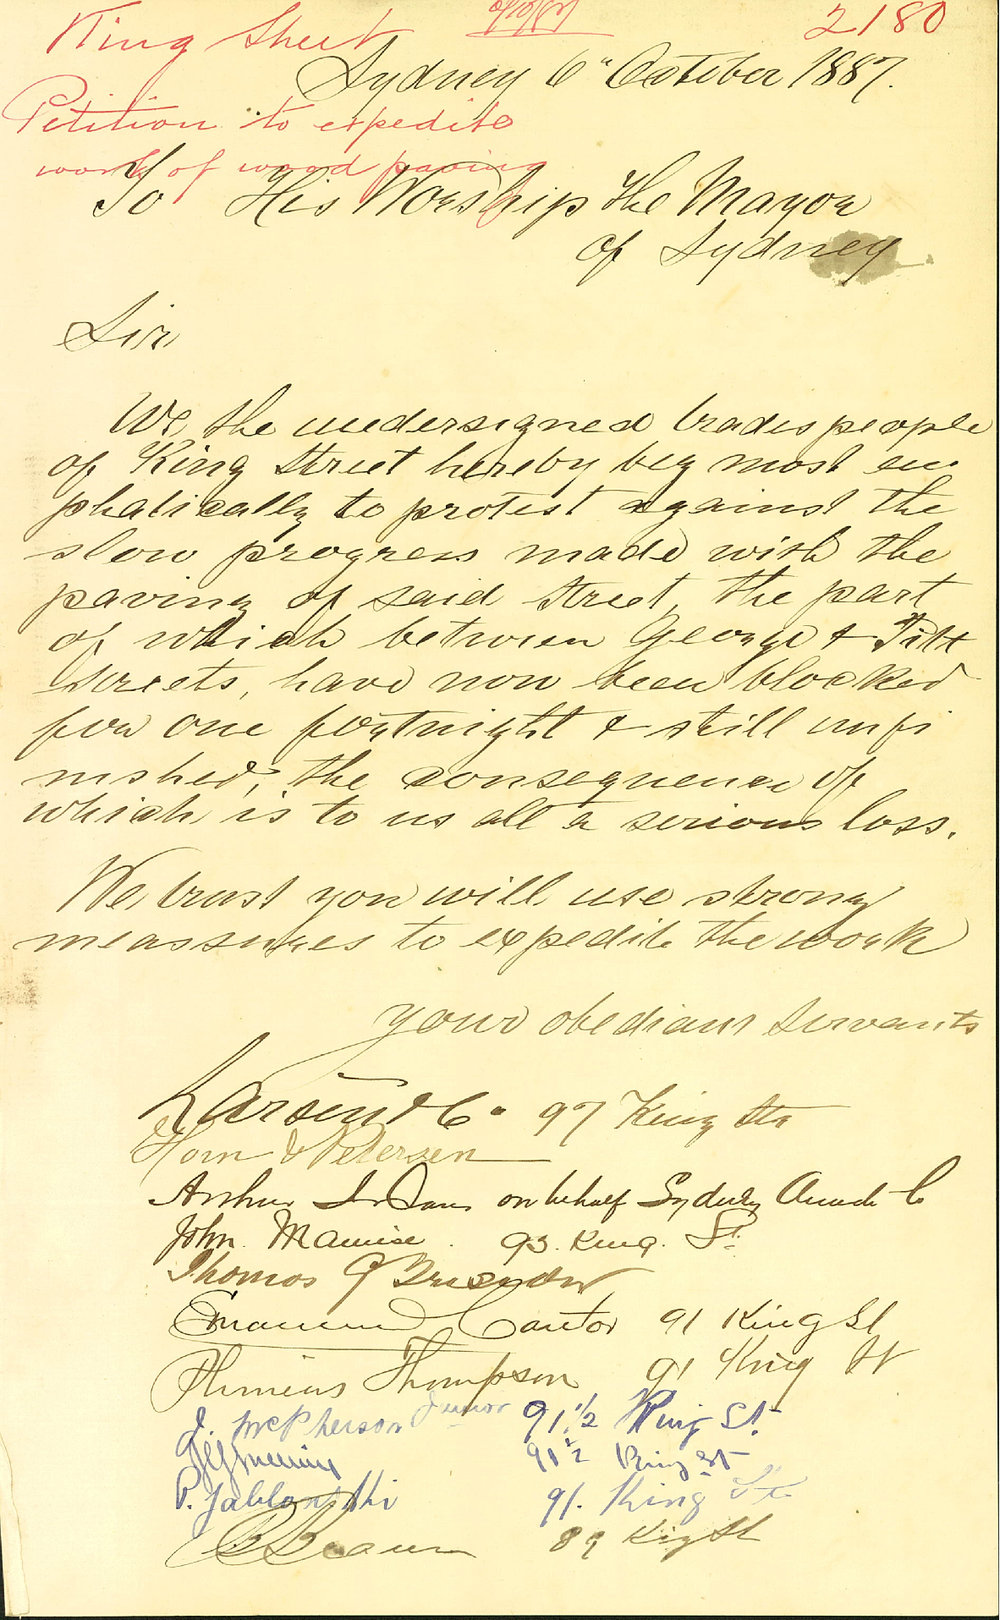 King Street 2180
Sydney 6" October 1887.
Petition to expedite
work of wood paving
To His Worship the Mayor
of Sydney
Sir
We the undersigned tradespeople
of King Street hereby beg most em
phatically to protest against the
slow progress made with the
paving of said Street, the part
of which between George & Pitt
Streets, have now been blocked
for one fortnight & still unfi
nished, the consequence of
which is to us all a serious loss.
We trust you will use strong
meassures to expedite the work
your obedians servants
Larsen & Co. 97 King Str
Horn & Petersen
Arthur on behalf Sydney Arcade Co
John 93. King. St.
Thomas G
Emanuel Cantor 91 King St
Phineas Thompson 91 King St
J. McPherson Junior 91 1/2 King St.
91 1/2 King St
P. Jablonski 91. King St
89 King St